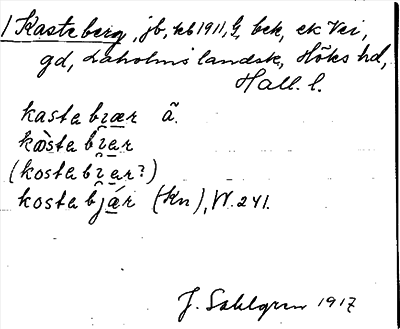 1 Kasteberg, jb, kb 1911, G, bek, ek Vei,
gd, Laholms landsk, Höks hd,
Hall. l.
kastabɩær ã.
kæ̀stabɩær
(kostabɩær?)
kostabjár (Kn), W. 241.
J. Sahlgren 1917